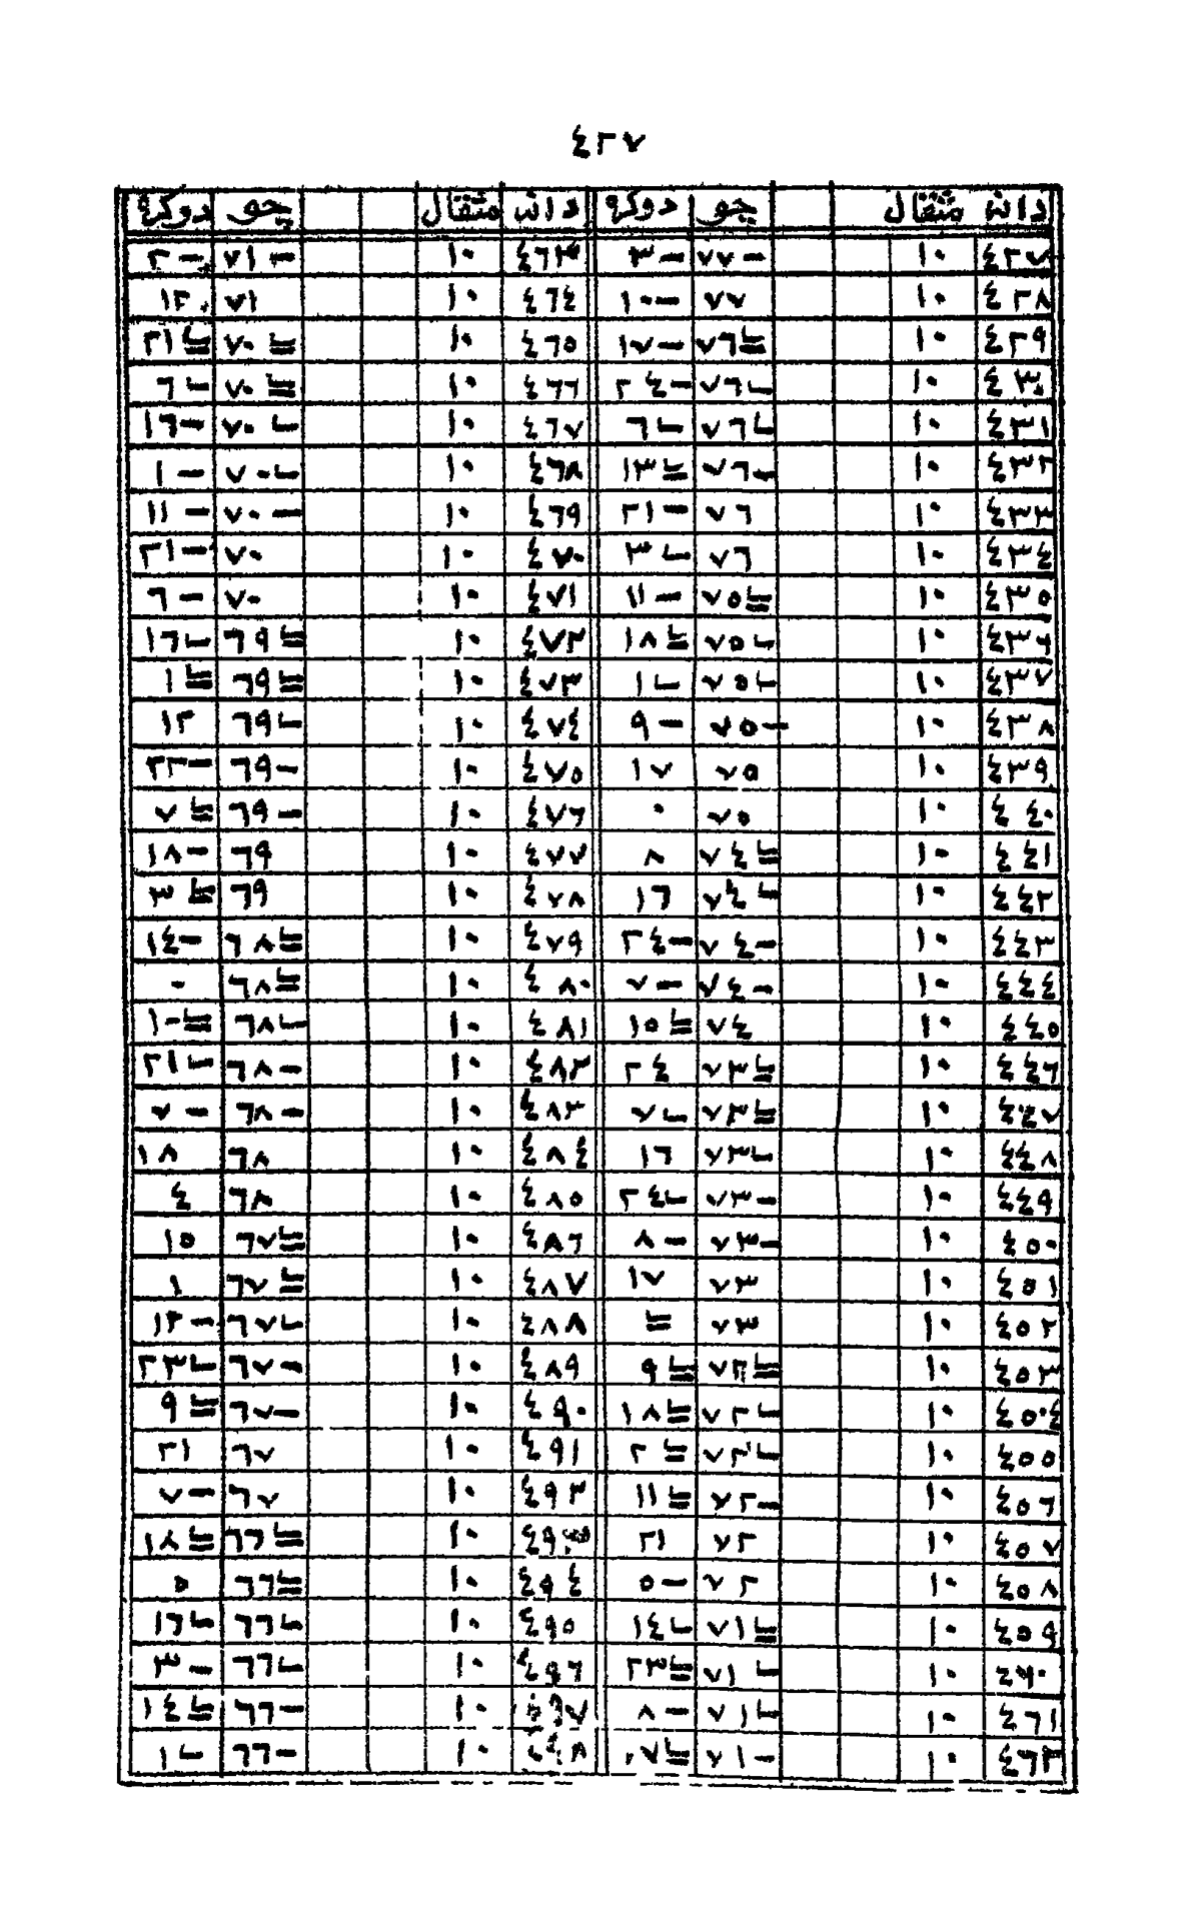 ٤٢٧
دانہ مثقال چو دوکرہ دانہ مثقال چو دوکرہ
٤٢٧ ١٠ ٧٧- ٣- ٤٦٣ ١٠ ٧١- ٢-
٤٢٨ ١٠ ٧٧ ١٠- ٤٦٤ ١٠ ٧١ ١٢
٤٢٩ ١٠ ٧٦≒ ١٧- ٤٦٥ ١٠ ٧٠≒ ٢١≒
٤٣٠ ١٠ ٧٦∟ ٢٤- ٤٦٦ ١٠ ٧٠≒ ٦∟
٤٣١ ١٠ ٧٦∟ ٦∟ ٤٦٧ ١٠ ٧٠∟ ١٦-
٤٣٢ ١٠ ٧٦- ١٣≒ ٤٦٨ ١٠ ٧٠∟ ١-
٤٣٣ ١٠ ٧٦ ٢١- ٤٦٩ ١٠ ٧٠- ١١-
٤٣٤ ١٠ ٧٦ ٣∟ ٤٧٠ ١٠ ٧٠ ٢١-
٤٣٥ ١٠ ٧٥≒ ١١- ٤٧١ ١٠ ٧٠ ٦-
٤٣٦ ١٠ ٧٥∟ ١٨≒ ٤٧٢ ١٠ ٦٩≒ ١٦∟
٤٣٧ ١٠ ٧٥∟ ١∟ ٤٧٣ ١٠ ٦٩≒ ١≒
٤٣٨ ١٠ ٧٥- ٩- ٤٧٤ ١٠ ٦٩∟ ١٢
٤٣٩ ١٠ ٧٥ ١٧ ٤٧٥ ١٠ ٦٩- ٢٢-
٤٤٠ ١٠ ٧٥ ٠ ٤٧٦ ١٠ ٦٩- ٧≒
٤٤١ ١٠ ٧٤≒ ٨ ٤٧٧ ١٠ ٦٩ ١٨-
٤٤٢ ١٠ ٧٤∟ ١٦ ٤٧٨ ١٠ ٦٩ ٣≒
٤٤٣ ١٠ ٧٤- ٢٤- ٤٧٩ ١٠ ٦٨≒ ١٤-
٤٤٤ ١٠ ٧٤- ٧- ٤٨٠ ١٠ ٦٨≒ ٠
٤٤٥ ١٠ ٧٤ ١٥≒ ٤٨١ ١٠ ٦٨∟ ١٠≒
٤٤٦ ١٠ ٧٣≒ ٢٤ ٤٨٢ ١٠ ٦٨- ٢١∟
٤٤٧ ١٠ ٧٣≒ ٧∟ ٤٨٣ ١٠ ٦٨- ٧-
٤٤٨ ١٠ ٧٣∟ ١٦ ٤٨٤ ١٠ ٦٨ ١٨
٤٤٩ ١٠ ٧٣- ٢٤∟ ٤٨٥ ١٠ ٦٨ ٤
٤٥٠ ١٠ ٧٣- ٨- ٤٨٦ ١٠ ٦٧≒ ١٥
٤٥١ ١٠ ٧٣ ١٧ ٤٨٧ ١٠ ٦٧≒ ١
٤٥٢ ١٠ ٧٣ ≒ ٤٨٨ ١٠ ٦٧∟ ١٢-
٤٥٣ ١٠ ٧٢≒ ٩≒ ٤٨٩ ١٠ ٦٧- ٢٣∟
٤٥٤ ١٠ ٧٢∟ ١٨≒ ٤٩٠ ١٠ ٦٧- ٩≒
٤٥٥ ١٠ ٧٢∟ ٢≒ ٤٩١ ١٠ ٦٧ ٢١
٤٥٦ ١٠ ٧٢- ١١≒ ٤٩٢ ١٠ ٦٧ ٧-
٤٥٧ ١٠ ٧٢ ٢١ ٤٩٣ ١٠ ٦٦≒ ١٨≒
٤٥٨ ١٠ ٧٢ ٥- ٤٩٤ ١٠ ٦٦≒ ٥
٤٥٩ ١٠ ٧١≒ ١٤∟ ٤٩٥ ١٠ ٦٦∟ ١٦∟
٤٦٠ ١٠ ٧١∟ ٢٣≒ ٤٩٦ ١٠ ٦٦∟ ٣-
٤٦١ ١٠ ٧١∟ ٨- ٤٩٧ ١٠ ٦٦- ١٤≒
٤٦٢ ١٠ ٧١- ١٧≒ ٤٩٨ ١٠ ٦٦- ١∟